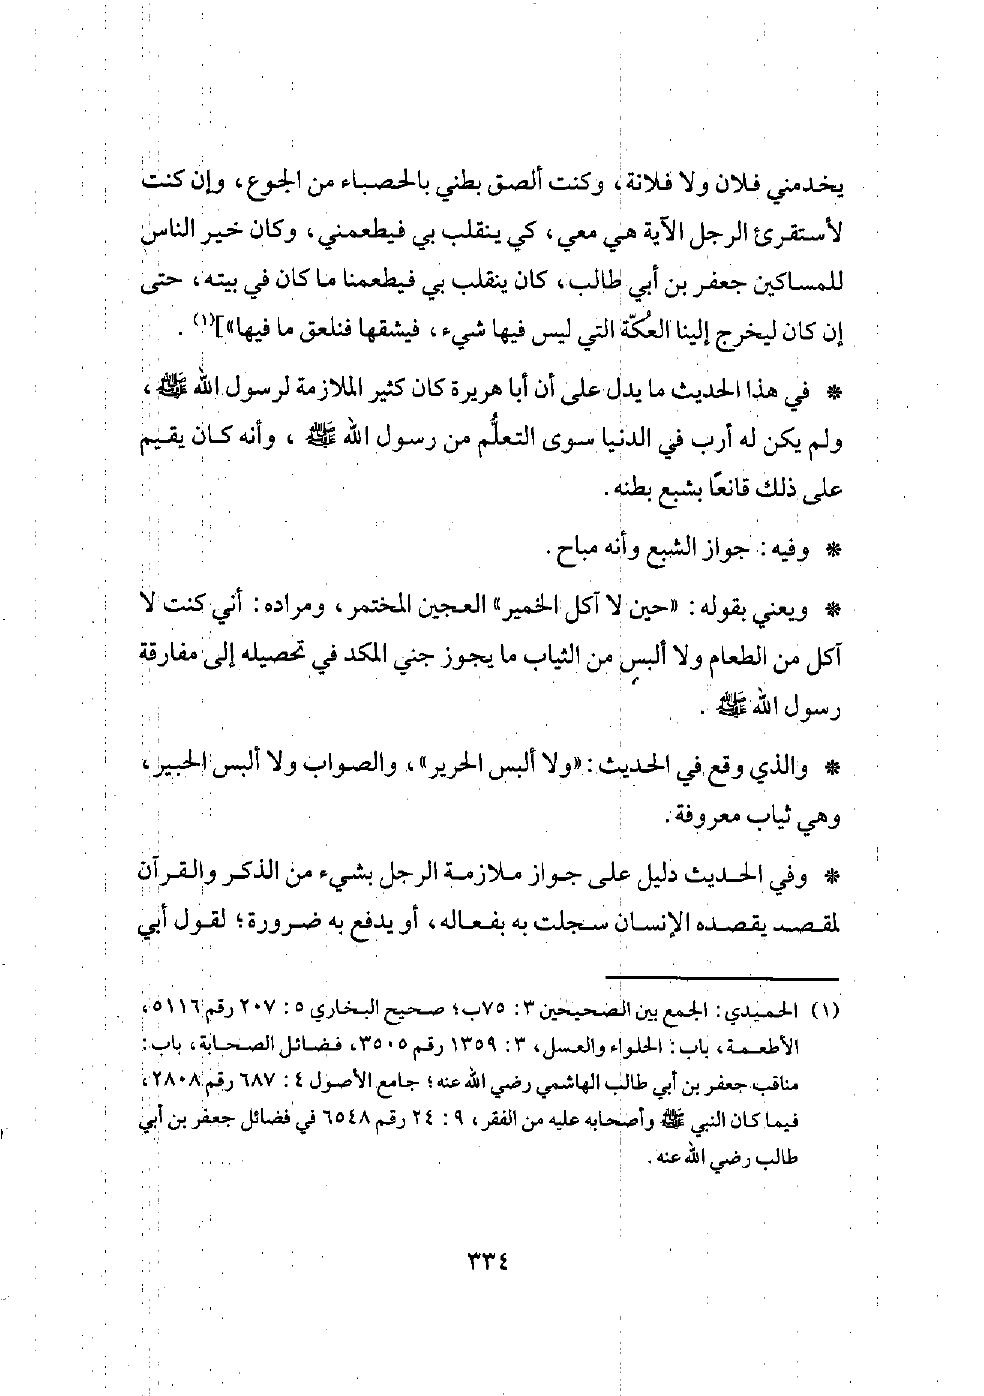 يخدمني فلان ولا فلانة، وكنت ألصق بطني بالحصباء من الجوع، وإن كنت
لأستقرئ الرجل الآية هي معي، كي ينقلب بي فيطعمني، وكان خير الناس
للمساكين جعفر بن أبي طالب، كان ينقلب بي فيطعمنا ما كان في بيته، حتى
إن كان ليخرج إلينا العُكّة التي ليس فيها شيء، فيشقها فنلعق ما فيها»](١).
* في هذا الحديث ما يدل على أن أبا هريرة كان كثير الملازمة لرسول الله ﷺ،
ولم يكن له أرب في الدنيا سوى التعلُّم من رسول الله ﷺ، وأنه كان يقيم
على ذلك قانعًا بشبع بطنه.
* وفيه: جواز الشبع وأنه مباح.
* ويعني بقوله: «حين لا آكل الخمير» العجين المختمر، ومراده: أني كنت لا
آكل من الطعام ولا ألبس من الثياب ما يجوز جني المكد في تحصيله إلى مفارقة
رسول الله ﷺ.
* والذي وقع في الحديث: «ولا ألبس الحرير»، والصواب ولا ألبس الحبير،
وهي ثياب معروفة.
* وفي الحديث دليل على جواز ملازمة الرجل بشيء من الذكر والقرآن
لمقصد يقصده الإنسان سجلت به بفعاله، أو يدفع به ضرورة؛ لقول أبي
(١) الحميدي: الجمع بين الصحيحين ٣: ٧٥ب؛ صحيح البخاري ٥: ٢٠٧ رقم ٥١١٦،
الأطعمة، باب: الحلواء والعسل، ٣: ١٣٥٩ رقم ٣٥٠٥، فضائل الصحابة، باب:
مناقب جعفر بن أبي طالب الهاشمي رضي الله عنه؛ جامع الأصول ٤: ٦٨٧ رقم ٢٨٠٨،
فيما كان النبي ﷺ وأصحابه عليه من الفقر، ٩: ٢٤ رقم ٦٥٤٨ في فضائل جعفر بن أبي
طالب رضي الله عنه.
٣٣٤